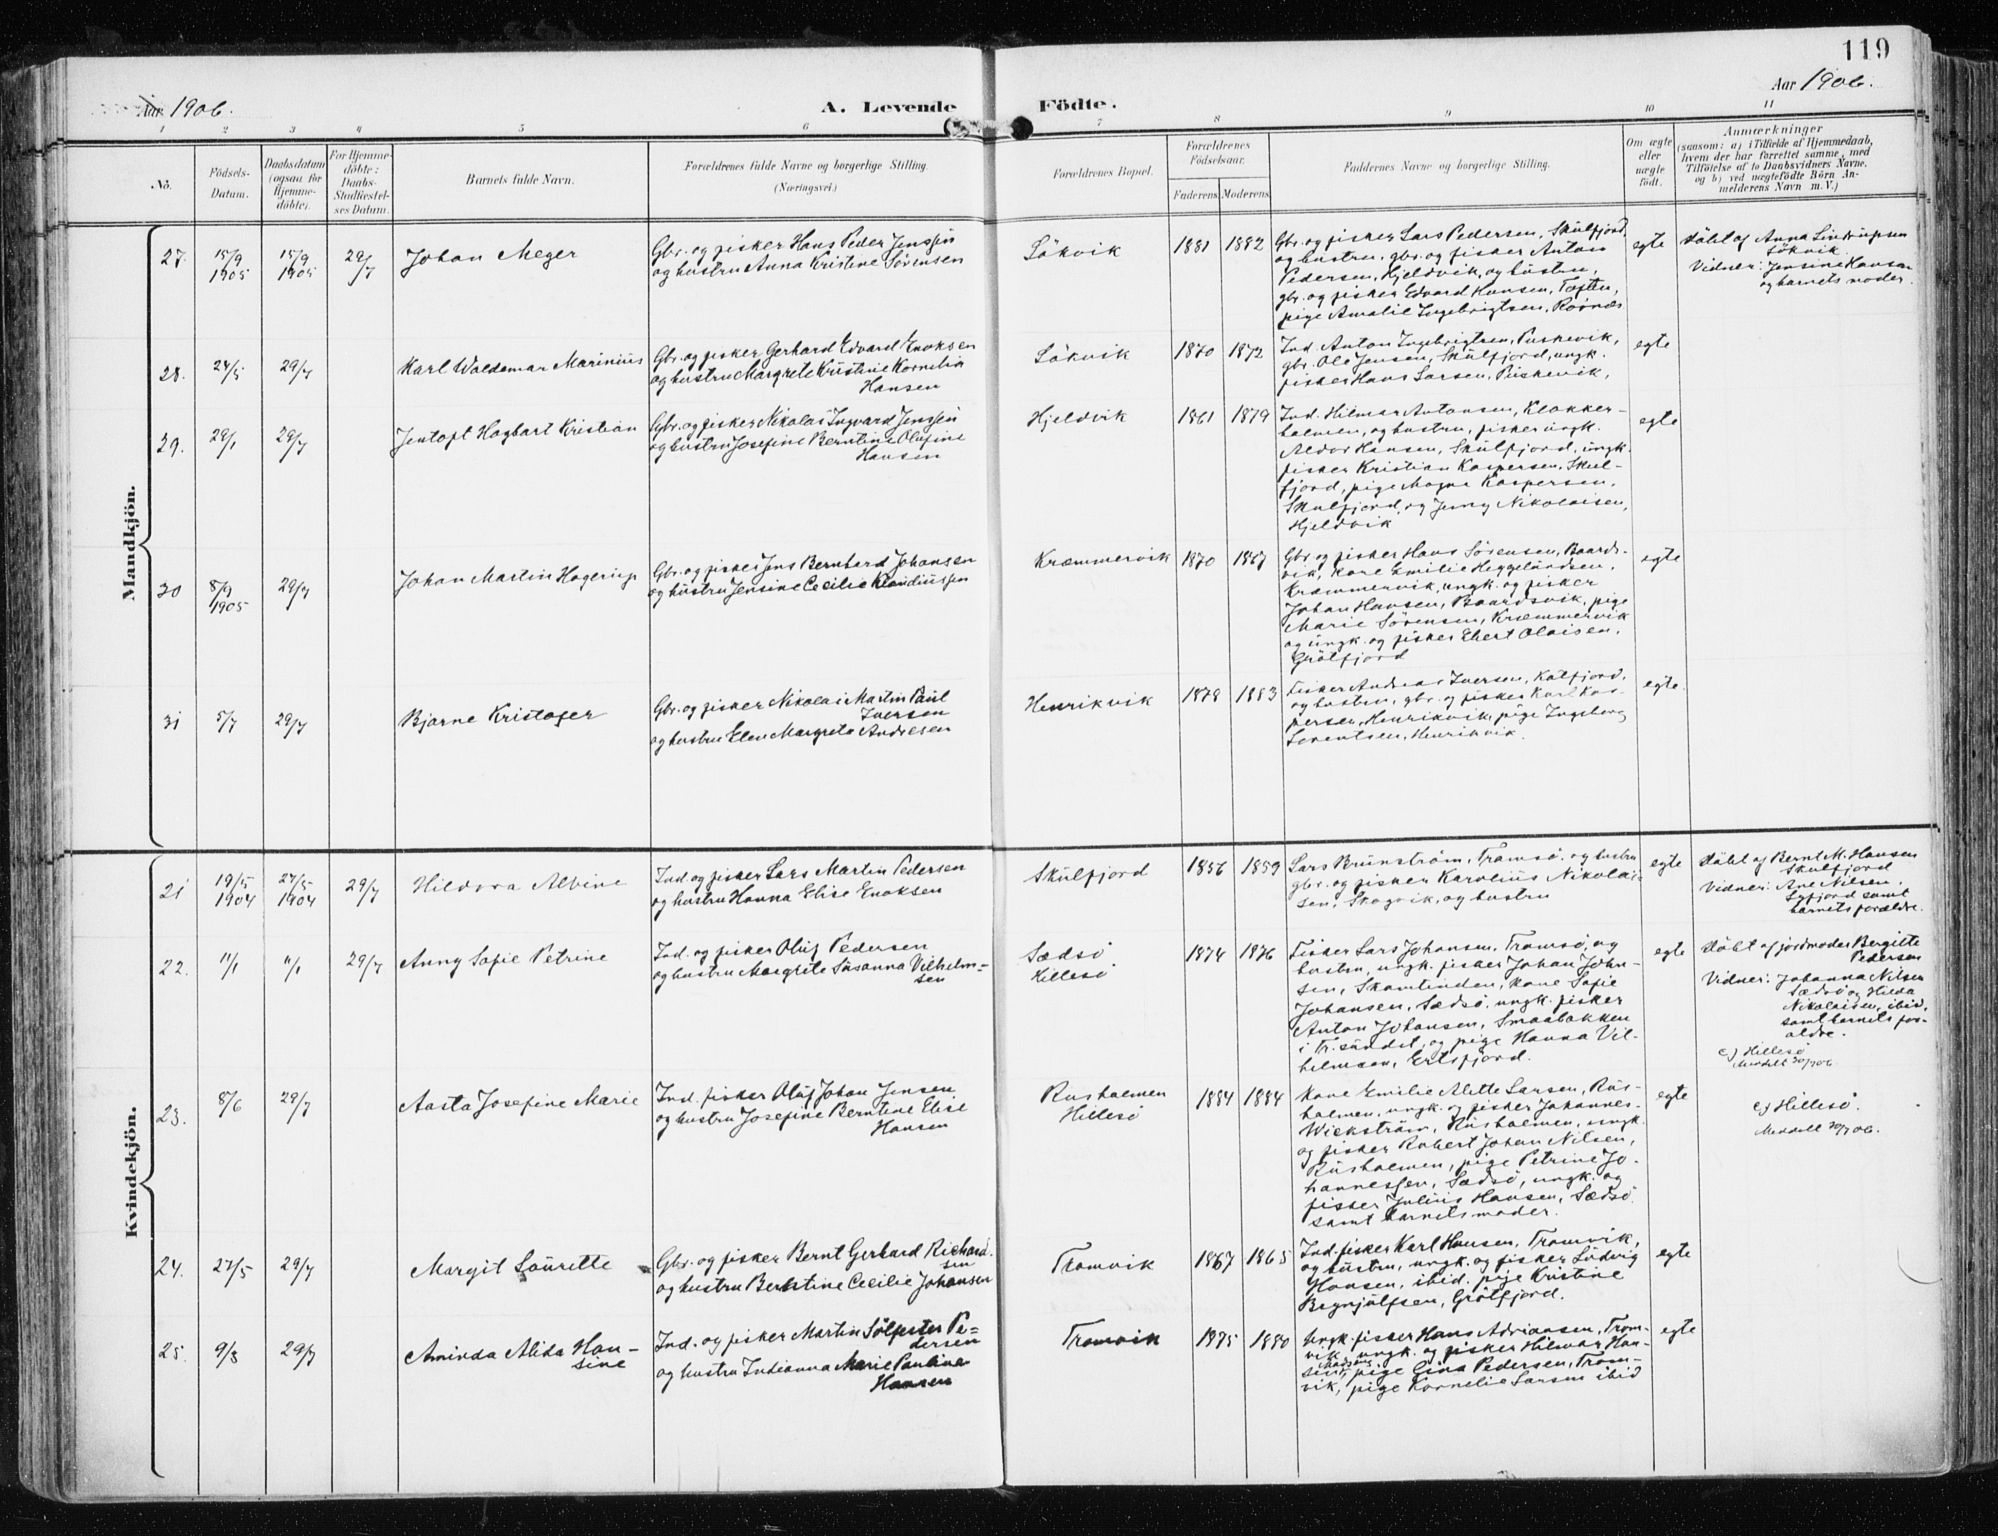 119
Aar 1906.
A. Levende
Födte.
Aar 1906.
1 2 3 4 5 6 7 8 9 10 11
No.
Födsels-Datum.
Daabsdatum (ogsaa for Hjemme-döbte).
For Hjemme-döbte: Daabs-Stadfæstel-ses Datum.
Barnets fulde Navn.
Forældrenes fulde Navne og borgerlige Stilling.
(Næringsvei.)
Forældrenes Bopæl.
Forældrenes Födselsaar.
Faderens Moderens
Faddernes Navne og borgerlige Stilling.
Om ægte eller uægte födt.
Anmærkninger
(saasom: a) i Tilfælde af Hjemmedaab,
hvem der har forrettet samme, med
Tilföielse af to Daabsvidners Navne,
og b) ved uægtefödte Börn An-
melderens Navn m. V.)
Mandkjön.
27. 15/9 1905 15/9 1905 29/7 Johan Meger
Gbr. og fisker Hans Peder Jenssen
og hustru Anna Kristine Sørensen
Lökvik 1881 1882
Gbr. og fisker Lars Pedersen, Skulfjord,
og hustru, gbr. og fisker Anton
Pedersen, Hjeldvik, og hustru,
gbr. og fisker Edvard Hansen, Toften,
pige Amalie Ingebrigtsen,
egte
döbt af Anna
Lökvik.
Vidner: Jensine Hansen
og barnets moder.
28. 24/5 29/7 Karl Waldemar Marinius
Gbr. og fisker Gerhard Edvard Enoksen
og hustru Margrete Kristine Kornelia
Hansen
Lökvik 1870 1872
Ind. Anton Ingebrigtsen,
gbr. Ole Jensen, Skulfjord, ungk.
fisker Hans Larsen,
egte
29. 29/1 29/7 Jentoft Hagbart Kristian
Gbr. og fisker Nikolai Ingvard Jenssen
og hustru Josefine Berntine Olufine
Hansen
Hjeldvik 1861 1879
Ind. Hilmar Antonsen, Klokker-
holmen, og hustru, fisker ungk.
Aldor Hansen, Skulfjord, ungk.
fisker Kristian Kaspersen, Skul-
fjord, pige Magna Kaspersen,
Skulfjord, og Jenny Nikolaisen,
Hjeldvik
egte
30 8/9 1905 29/7 Johan Martin Hagerup
Gbr. og fisker Jens Bernhard Johansen
og hustru Jensine Cecilie Klaudiussen
Kræmmervik 1870 1867
Gbr. og fisker Hans Sørensen, Baards-
vik, kone Emilie Heggelundsen,
Kræmmervik, ungk. og fisker
Johan Hansen, Baardsvik, pige
Marie Sørensen, Kræmmervik
og ungk. og fisker Ebert Olaisen,
Grötfjord
egte
31 5/7 29/7 Bjarne Kristofer
Gbr. og fisker Nikolai Martin Paul
Iversen
og hustru Elen Margrete Andresen
Henrikvik 1878 1883
Fisker Andreas Iversen, Kalfjord,
og hustru, gbr. og fisker Karl Kas-
persen, Henrikvik, pige Ingeborg
Lorentsen, Henrikvik.
egte.
Kvindekjön.
21 19/5 1904 27/5 1904 29/7 Hildora Albine
Ind. og fisker Lars Martin Pedersen
og hustru Hanna Elise Enoksen
Skulfjord 1856 1859
Lars Brunström, Tromsö, og hustru
gbr. og fisker Karolius Nikolai-
sen, Skogvik, og hustru
egte
döbt af Bernt M. Hansen
Skulfjord
Vidner: Ane Nilsen,
Lyfjord samt
barnets forældre.
22. 11/1 11/1 29/7 Anny Sofie Petrine
Ind. og fisker Oluf Pedersen
og hustru Margrete Susanna Vilhelm-
sen
Sædsö
Hillesö
1874 1876
Fisker Lars Johansen, Tromsö, og
hustru, ungk. fisker Johan John-
sen, Skamtinden, kone Sofie
Johansen, Sædsö, ungk. fisker
Anton Johansen, Smaabakken
i Tr.sundet, og pige Hanna Vil-
helmsen, Ersfjord.
egte
döbt af jordmoder Bergitte
Pedersen
Vidner: Johanna Nilsen
Sædsö og Hilda
Nikolaisen, ibid.
samt barnets for-
ældre.
c) Hillesö
Meddelt 30/7 06.
23. 8/6 29/7 Aasta Josefine Marie
Ind. fisker Oluf Johan Jensen
og hustru Josefine Berntine Elise
Hansen
Rusholmen
Hillesö
1884 1884
Kone Emilie Alette Larsen, Rus-
holmen, ungk. og fisker Johannes
Wickström, Rusholmen, ungk.
og fisker Robert Johan Nilsen,
Rusholmen, pige Petrine Jo-
hannessen, Sædsö, ungk. og
fisker Julius Hansen, Sædsö
samt barnets moder.
egte
c) Hillesö.
Meddelt 30/7 06.
24. 27/5 29/7 Margit Laurette
Gbr. og fisker Bernt Gerhard Richard-
sen
og hustru Berntine Cecilie Johansen
Tromvik 1867 1865
Ind. fisker Karl Hansen, Tromvik,
og hustru, ungk. og fisker Ludvig
Hansen, ibid. pige Kristine
Brynjulfsen, Grötfjord.
egte
25. 9/3 29/7 Aminda Alida Han-
sine
Ind. og fisker Martin Sölfester Pe-
dersen
og hustru Indianna Marie Pauline
Hansen
Tromvik 1875 1880
Ungk. fisker Hans Adriansen, Trom-
vik, ungk. og fisker Hilmar Han-
sen, pige Gina Pedersen, Trom-
vik, pige Kornelie Larsen ibid
egte